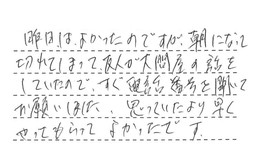 昨日は、よかったのですが、朝になって
切れてしまって、友人が大問屋の話を
していたので、すぐ電話番号を聞いて
お願いしました、思っていたより早く
やってもらってよかったです。